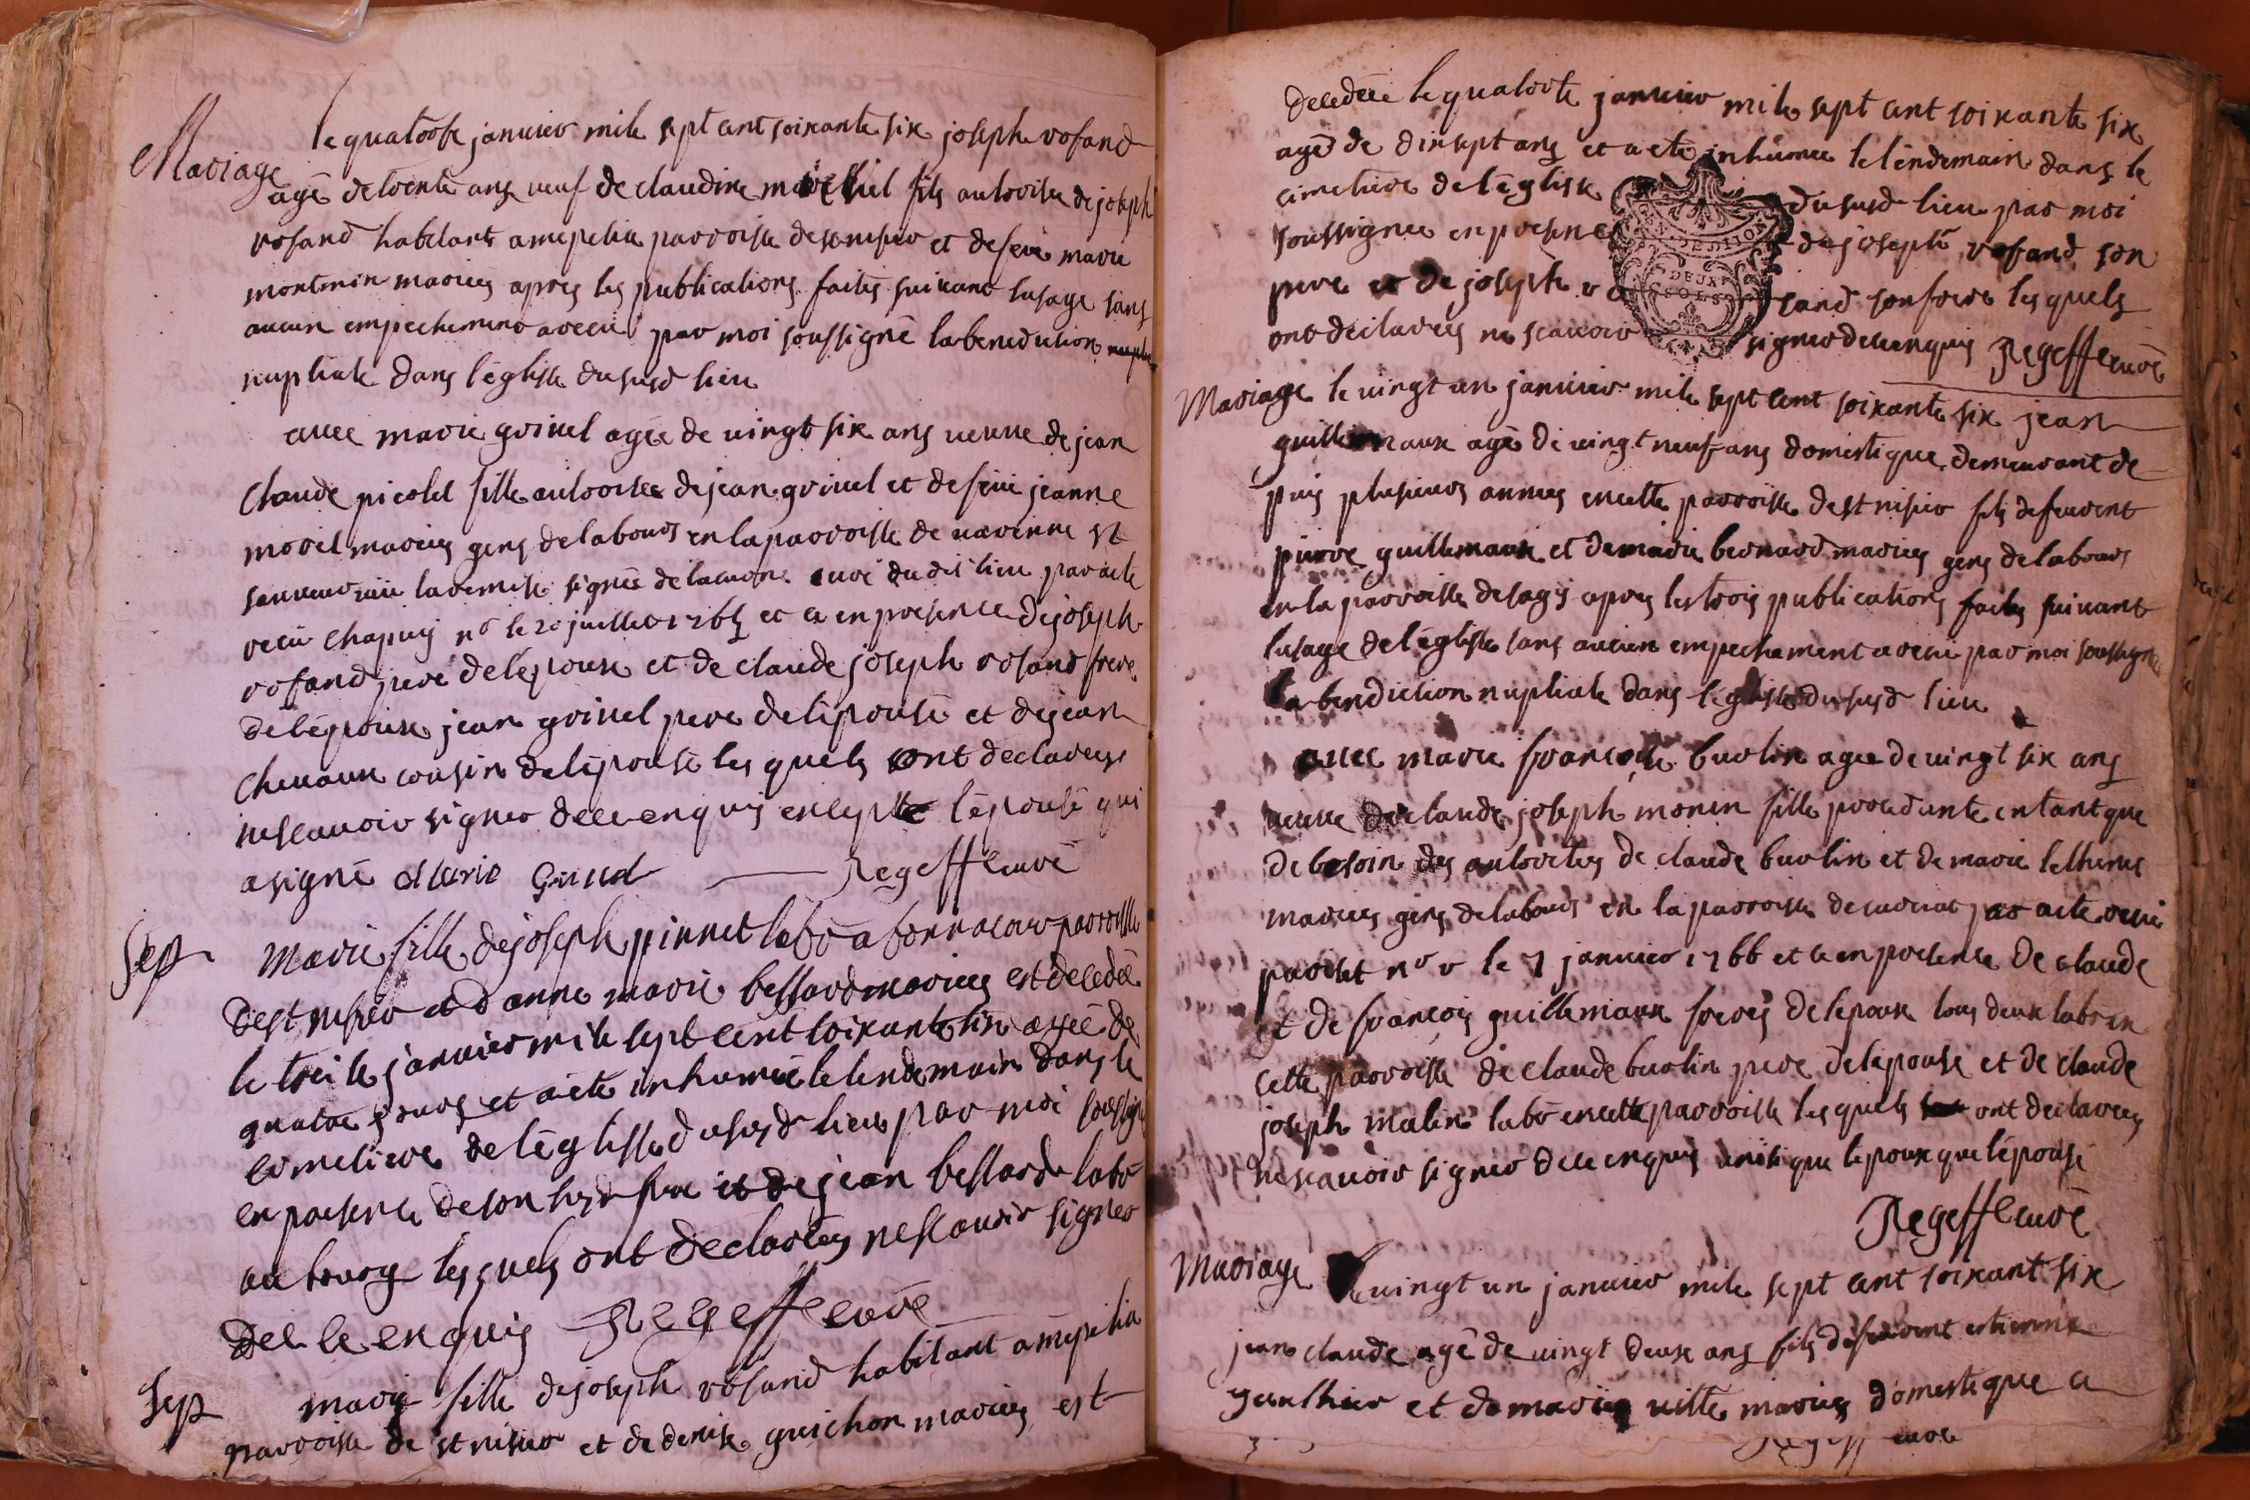 Mariage
le quatorse janvier mile sept cent soixante six joseph rosand
agé de trente ans veuf de claudine fils autorisé de joseph
rosand habitant a mepilia parroisse de st nisier et de feue marie
montmin mariés apres les publications faites suivant lusage sans
aucun empechement a receu par moi soussigné la benediction
nuptiale dans léglise dususd lieu
avec marie grivel agée de vingt six ans veuve de jean
claude picolet fille autorisée de jean grivel et de feue jeanne
morel mariés gens de labour en la parroisse de varenne st
sauveur vüe la remise signée curé du dit lieu par acte
receu chapuis nre le 20 juillet 1765 et ce en presence de joseph
rosand pere de lépoux et de claude joseph rosand frere
de lépoux jean grivel pere de lépouse et de jean
chevaux cousin de lépouse les quels ont declarés
ne scavoir signer de ce enquis excepté lépouse qui
a signé Marie Grivel Regeffe curé
Sep
Marie fille de joseph pinnet labr a parroisse
de st nisier et d anne marie bessard mariés est decedée
le treise janvier mile sept cent soixante six agée de
quatre jours et a été inhumée le lendemain dans le
cimetiere de léglisse dususd lieu par moi soussigné
en presence de son susd pere et de jean bessard labr
au bourg lesquels ont declarés ne scavoir signer
de ce enquis Regeffe curé
Sep
marie fille de joseph rosand habitant a mepilia
parroisse de st nisier et de denise guichon mariés est
decedée le quatorse janvier mile sept cent soixante six
agé de dixsept ans et a eté inhumée le lendemain dans le
cimetiere de léglise dususd lieu par moi
soussigné en presence de joseph rosand son
pere et de joseph rosand son frere les quels
ont declarés ne scavoir signer de ce enquis Regeffe curé
GEN. DE DIJON
DEUX
SOLS
Mariage le vingt un janvier mile sept cent soixante six jean
guillemaux agé de vingt neuf ans domestique demeurant de
puis plusieurs années en cette parroisse de st nisier fils de feuvent
pierre guillemaux et de marie bernard mariés gens de labour
en la parroisse de sagy apres les trois publications faites suivant
lusage de léglise sans aucun empechement a receu par moi soussigné
la bendiction nuptiale dans léglise dususd lieu
avec marie francoise burtin agée de vingt six ans
veuve de claude joseph monin fille procedante en tant que
de besoin des autorités de claude burtin et de marie
mariés gens de labour en la parroisse de par acte receu
nre le 7 janvier 1766 et ce en presence de claude
et de francois guillemaux freres de lepoux tous deux labr en
cette parroisse de claude burtin pere de lépouse et de claude
joseph labr en cette parroisse les quels ont declarés
ne scavoir signer de ce enquis que lepoux que lépouse
Regeffe curé
Mariage le vingt un janvier mile sept cent soixant six
jean claude agé de vingt deux ans fils de feuvent estienne
gauthier et de marie mariés domestique a
Regeffe curé